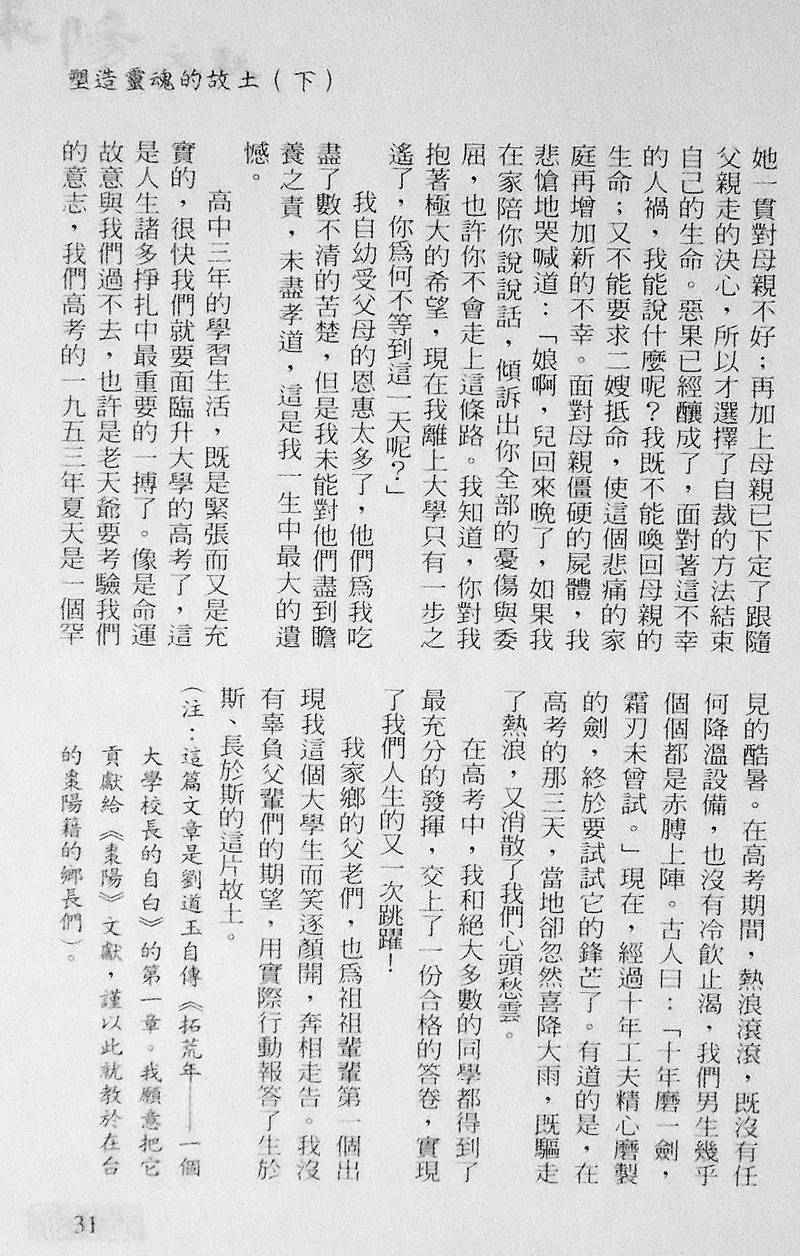 塑造靈魂的故土（下）
她一貫對母親不好；再加上母親已下定了跟隨
父親走的決心，所以才選擇了自裁的方法結束
自己的生命。惡果已經釀成了，面對著這不幸
的人禍，我能說什麼呢？我既不能喚回母親的
生命；又不能要求二嫂抵命，使這個悲痛的家
庭再增加新的不幸。面對母親僵硬的屍體，我
悲愴地哭喊道：「娘啊，兒回來晚了，如果我
在家陪你說說話，傾訴出你全部的憂傷與委
屈，也許你不會走上這條路。我知道，你對我
抱著極大的希望，現在我離上大學只有一步之
遙了，你爲何不等到這一天呢？」
我自幼受父母的恩惠太多了，他們爲我吃
盡了數不清的苦楚，但是我未能對他們盡到贍
養之責，未盡孝道，這是我一生中最大的遺
憾。
高中三年的學習生活，既是緊張而又是充
實的，很快我們就要面臨升大學的高考了，這
是人生諸多掙扎中最重要的一搏了。像是命運
故意與我們過不去，也許是老天爺要考驗我們
的意志，我們高考的一九五三年夏天是一個罕
見的酷暑。在高考期間，熱浪滾滾，既沒有任
何降溫設備，也沒有冷飲止渴，我們男生幾乎
個個都是赤膊上陣。古人曰：「十年磨一劍，
霜刃未曾試。」現在，經過十年工夫精心磨製
的劍，終於要試試它的鋒芒了。有道的是，在
高考的那三天，當地卻忽然喜降大雨，既驅走
了熱浪，又消散了我們心頭愁雲。
在高考中，我和絕大多數的同學都得到了
最充分的發揮，交上了一份合格的答卷，實現
了我們人生的又一次跳躍！
我家鄉的父老們，也爲祖祖輩輩第一個出
現我這個大學生而笑逐顏開，奔相走告。我沒
有辜負父輩們的期望，用實際行動報答了生於
斯、長於斯的這片故土。
（注：這篇文章是劉道玉自傳《拓荒年——一個
大學校長的自白》的第一章。我願意把它
貢獻給《棗陽》文獻，謹以此就教於在台
的棗陽籍的鄉長們）。
31